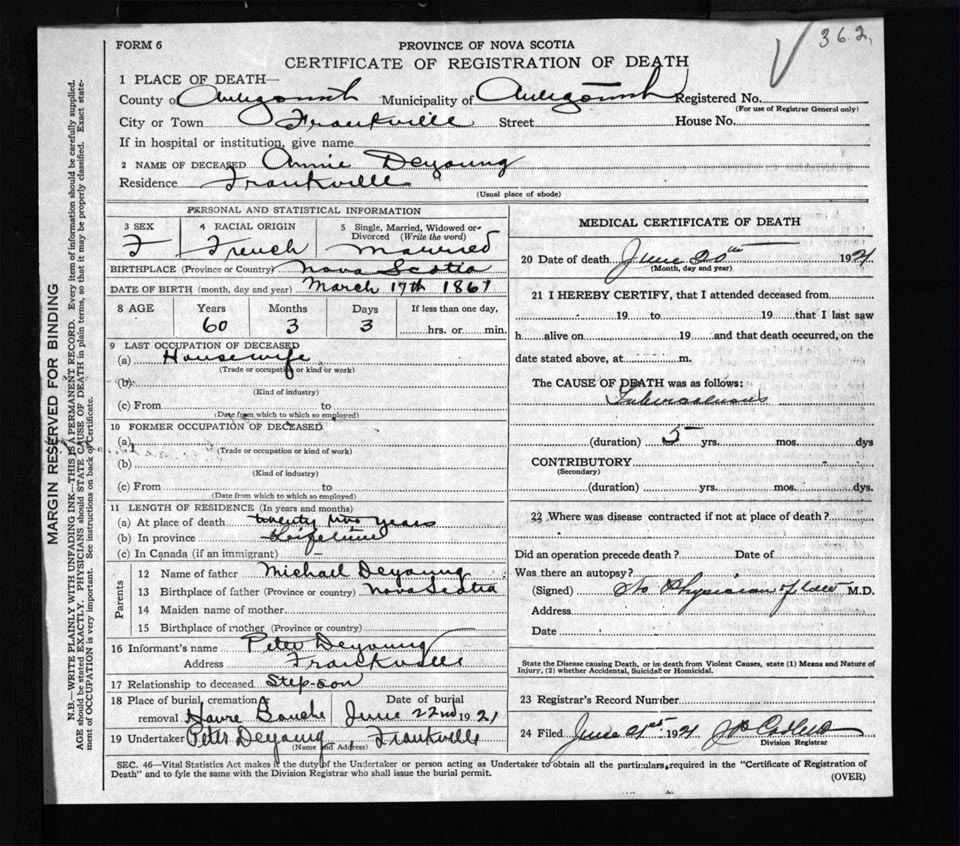 362.
FORM 6
PROVINCE OF NOVA SCOTIA
CERTIFICATE OF REGISTRATION OF DEATH
1 PLACE OF DEATH—
County of Antigonish Municipality of Antigonish Registered No.
(For use of Registrar General only)
City or Town Frankville Street House No.
If in hospital or institution, give name
2 NAME OF DECEASED Annie Deyoung
Residence Frankville
(Usual place of abode)
PERSONAL AND STATISTICAL INFORMATION
3 SEX 4 RACIAL ORIGIN 5 Single, Married, Widowed or Divorced (Write the word)
F French Married
BIRTHPLACE (Province or Country) Nova Scotia
DATE OF BIRTH (month, day and year) March 17th 1861
8 AGE Years Months Days If less than one day,
60 3 3 hrs. or min.
9 LAST OCCUPATION OF DECEASED
(a) Housewife
(Trade or occupation or kind or work)
(b)
(Kind of industry)
(c) From to
(Date from which to which so employed)
10 FORMER OCCUPATION OF DECEASED
(a)
(Trade or occupation or kind of work)
(b)
(Kind of industry)
(c) From to
(Date from which to which so employed)
11 LENGTH OF RESIDENCE (In years and months)
(a) At place of death twenty two years
(b) In province Lifetime
(c) In Canada (if an immigrant) –
Parents
12 Name of father Michael Deyoung
13 Birthplace of father (Province or country) Nova Scotia
14 Maiden name of mother
15 Birthplace of mother (Province or Country)
16 Informant's name Peter Deyoung
Address Frankville
17 Relationship to deceased Step-son
18 Place of burial, cremation or Date of burial
removal Havre Bouche June 22nd 1921
19 Undertaker Peter Deyoung, Frankville
(Name and Address)
MEDICAL CERTIFICATE OF DEATH
20 Date of death June 20th 1921
(Month, day and year)
21 I HEREBY CERTIFY, that I attended deceased from
19 to 19 that I last saw
h alive on 19 and that death occurred, on the
date stated above, at m.
The CAUSE OF DEATH was as follows:
Tuberculosis
(duration) 5 yrs. mos. dys
CONTRIBUTORY
(Secondary)
(duration) yrs. mos. dys
22 Where was disease contracted if not at place of death?
Did an operation precede death? Date of
Was there an autopsy?
(Signed) No Physician M.D.
Address
Date
State the Disease causing Death, or in death from Violent Causes, state (1) Means and Nature of
Injury, (2) whether Accidental, Suicidal or Homicidal.
23 Registrar's Record Number
24 Filed June 21st 1921
Division Registrar
SEC. 46—Vital Statistics Act makes it the duty of the Undertaker or person acting as Undertaker to obtain all the particulars required in the "Certificate of Registration of
Death" and to fyle the same with the Division Registrar who shall issue the burial permit.
(OVER)
MARGIN RESERVED FOR BINDING
N.B.—WRITE PLAINLY WITH UNFADING INK—THIS IS A PERMANENT RECORD. Every item of information should be carefully supplied.
AGE should be stated EXACTLY. PHYSICIANS should STATE CAUSE OF DEATH in plain terms, so that it may be properly classified. Exact state-
ment of OCCUPATION is very important. See instructions on back of Certificate.